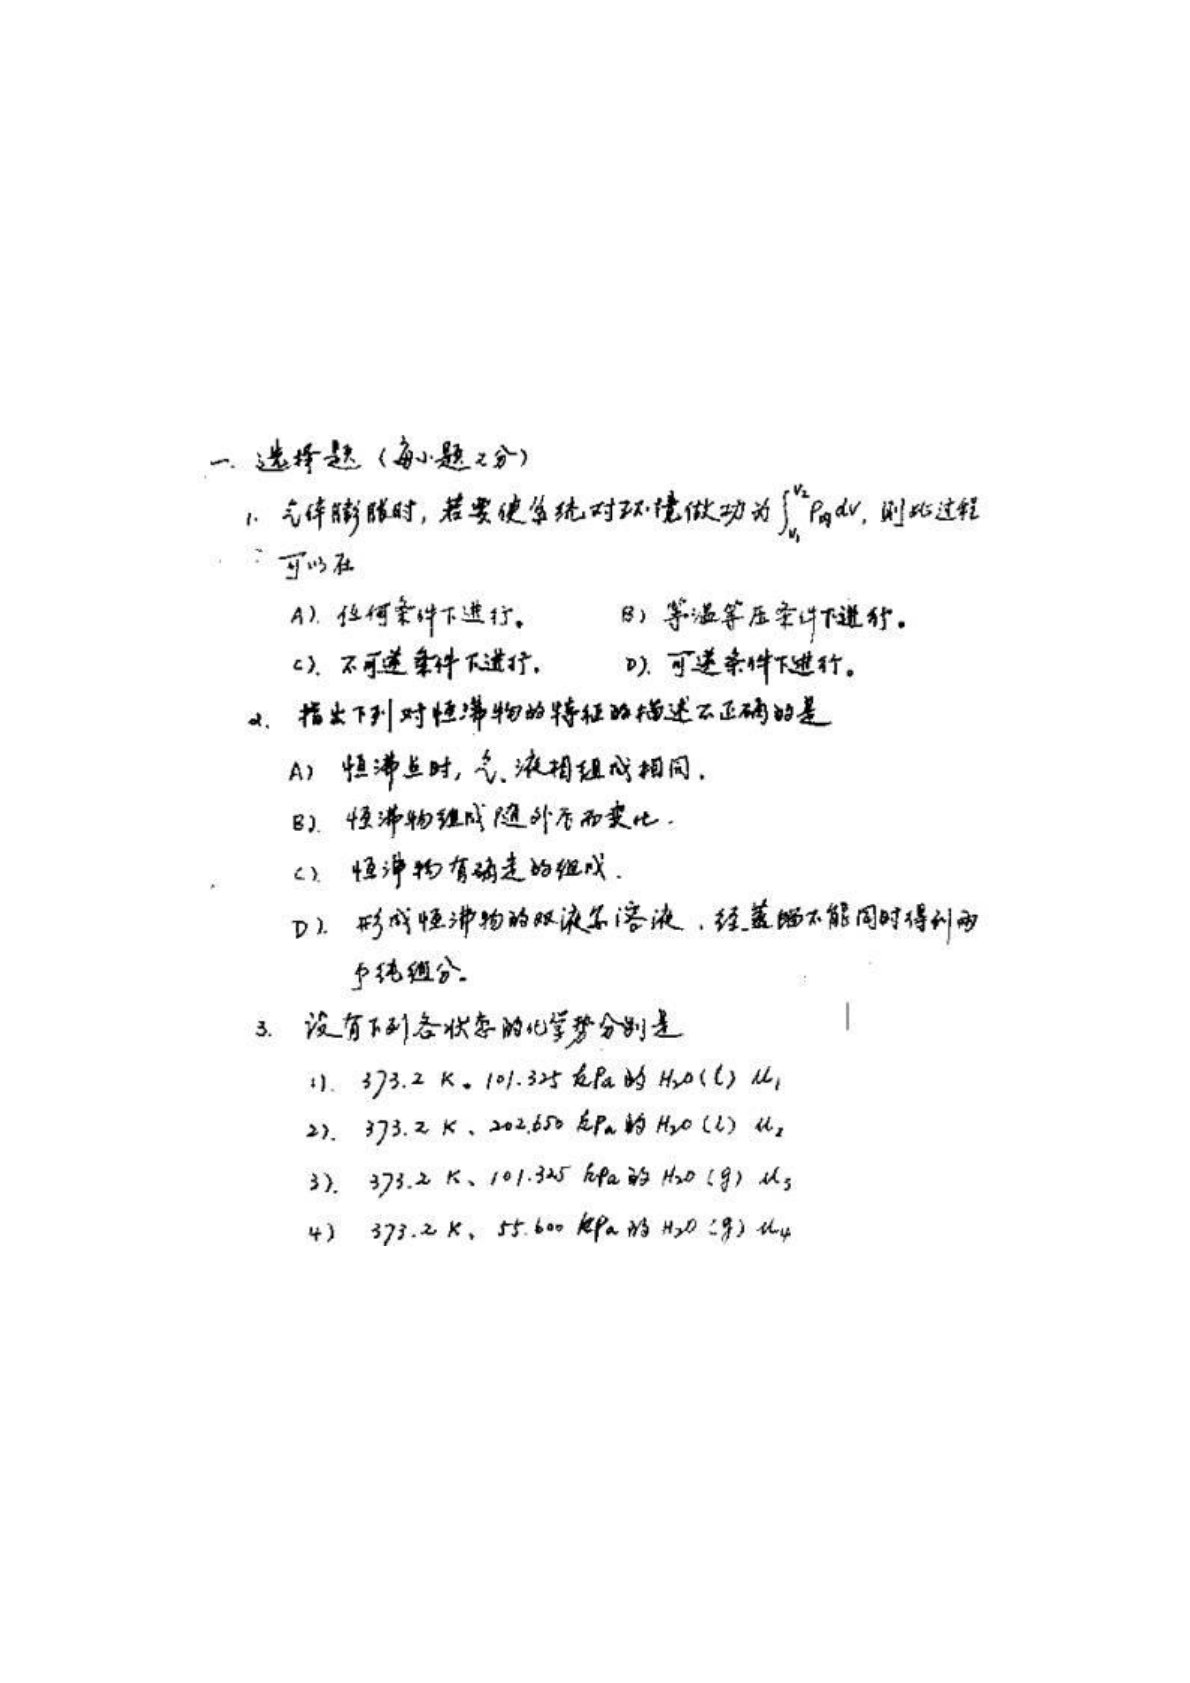 一. 选择题（每小题2分）
1. 气体膨胀时, 若要使系统对环境做功为∫_{V₁}^{V₂} P内dV, 则此过程
可以在
A). 任何条件下进行。 B) 等温等压条件下进行。
C). 不可逆条件下进行. D). 可逆条件下进行。
2. 指出下列对恒沸物的特征的描述不正确的是
A) 恒沸点时, 气、液相组成相同.
B). 恒沸物组成随外压而变化.
C). 恒沸物有确定的组成.
D). 形成恒沸物的双液系溶液, 经蒸馏不能同时得到两
个纯组分.
3. 设有下列各状态的化学势分别是
1). 373.2 K、101.325 kPa的 H₂O(l) μ₁
2). 373.2 K、202.650 kPa的 H₂O(l) μ₂
3). 373.2 K、101.325 kPa的 H₂O(g) μ₃
4) 373.2 K、55.600 kPa的 H₂O(g) μ₄